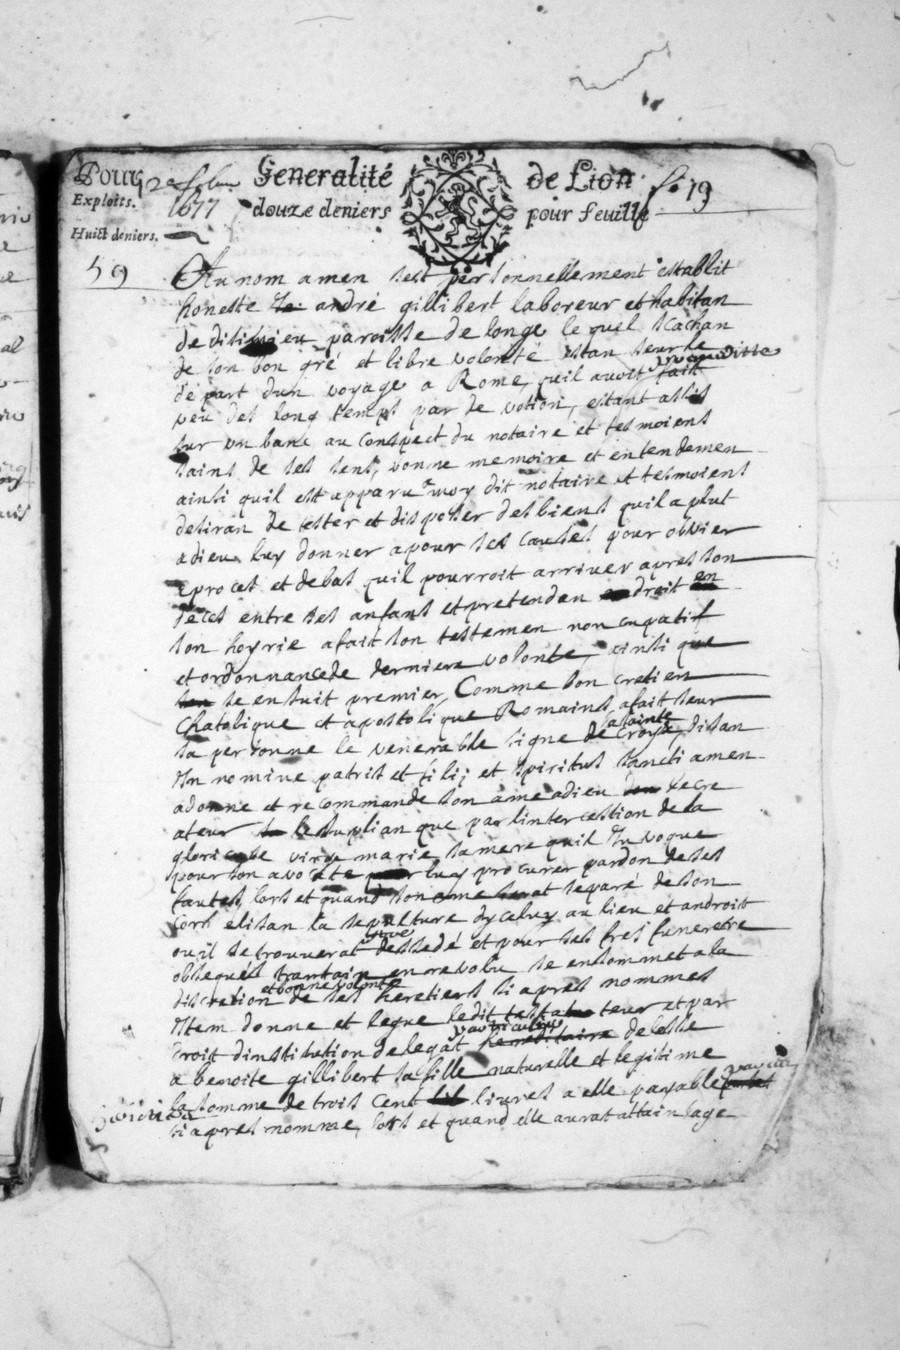 Pour
Generalité de Lion
fo 79
Exploits.
1677
douze deniers pour feuille
Huict deniers.
59
Au nom amen sest personnellement establit
honeste andré gillibert laboreur et habitan
de disimieu paroisse de longe le quel scachan
de son bon gré et libre volonté estan seur le
de part dun voyage a Rome, quil auoit fait
veu des long temps par de votion, estant assis
sur un banc au conspect du notaire et tesmoiens
sains de ses sens, bonne memoire et entendemen
ainsi quil est apparu a moy dit notaire et tesmoiens
desiran de tester et disposer des biens quil a plut
a dieu luy donner a pour ses causes pour obvier
a proces et debas quil pourroit arriver apres son
deces entre ses anfans et pretendan droit en
son hoyrie a fait son testemen non cupatif
et ordonnance de derniere volonte, ainsi que
se ensuit premier, Comme bon cretien
Chatolique et apostolique Romains, a fait seur
sa personne le venerable signe de la sainte croys, disan
In nomine patris et filij et spiritus sancti amen
a donne et recommande son ame a dieu le cre
ateur le supplian que par linter cession de la
glorieuse virge marie sa mere quil Invoque
pour son avocate luy procurer pardon de ses
fautes, lors et quand son ame serat separé de son
cors elisan la sepulture dyceluy au lieu et androit
ou il se trouverat estre dessedé et pour ses fres funeretre
obseques trantain en revolu se ensommet a la
discretion et bonne volonte de ses heretiers si apres nommes
Item donne et legue ledit testateur et par
droit dinstitution de legat particulier de lesse
a benoite gillibert sa fille naturelle et legitime
la somme de trois cent livres a elle payable
si apres nomme, lors et quand elle aurat attain lage